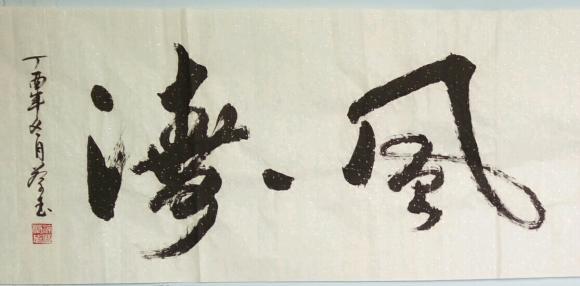 風濤
丁酉年冬月